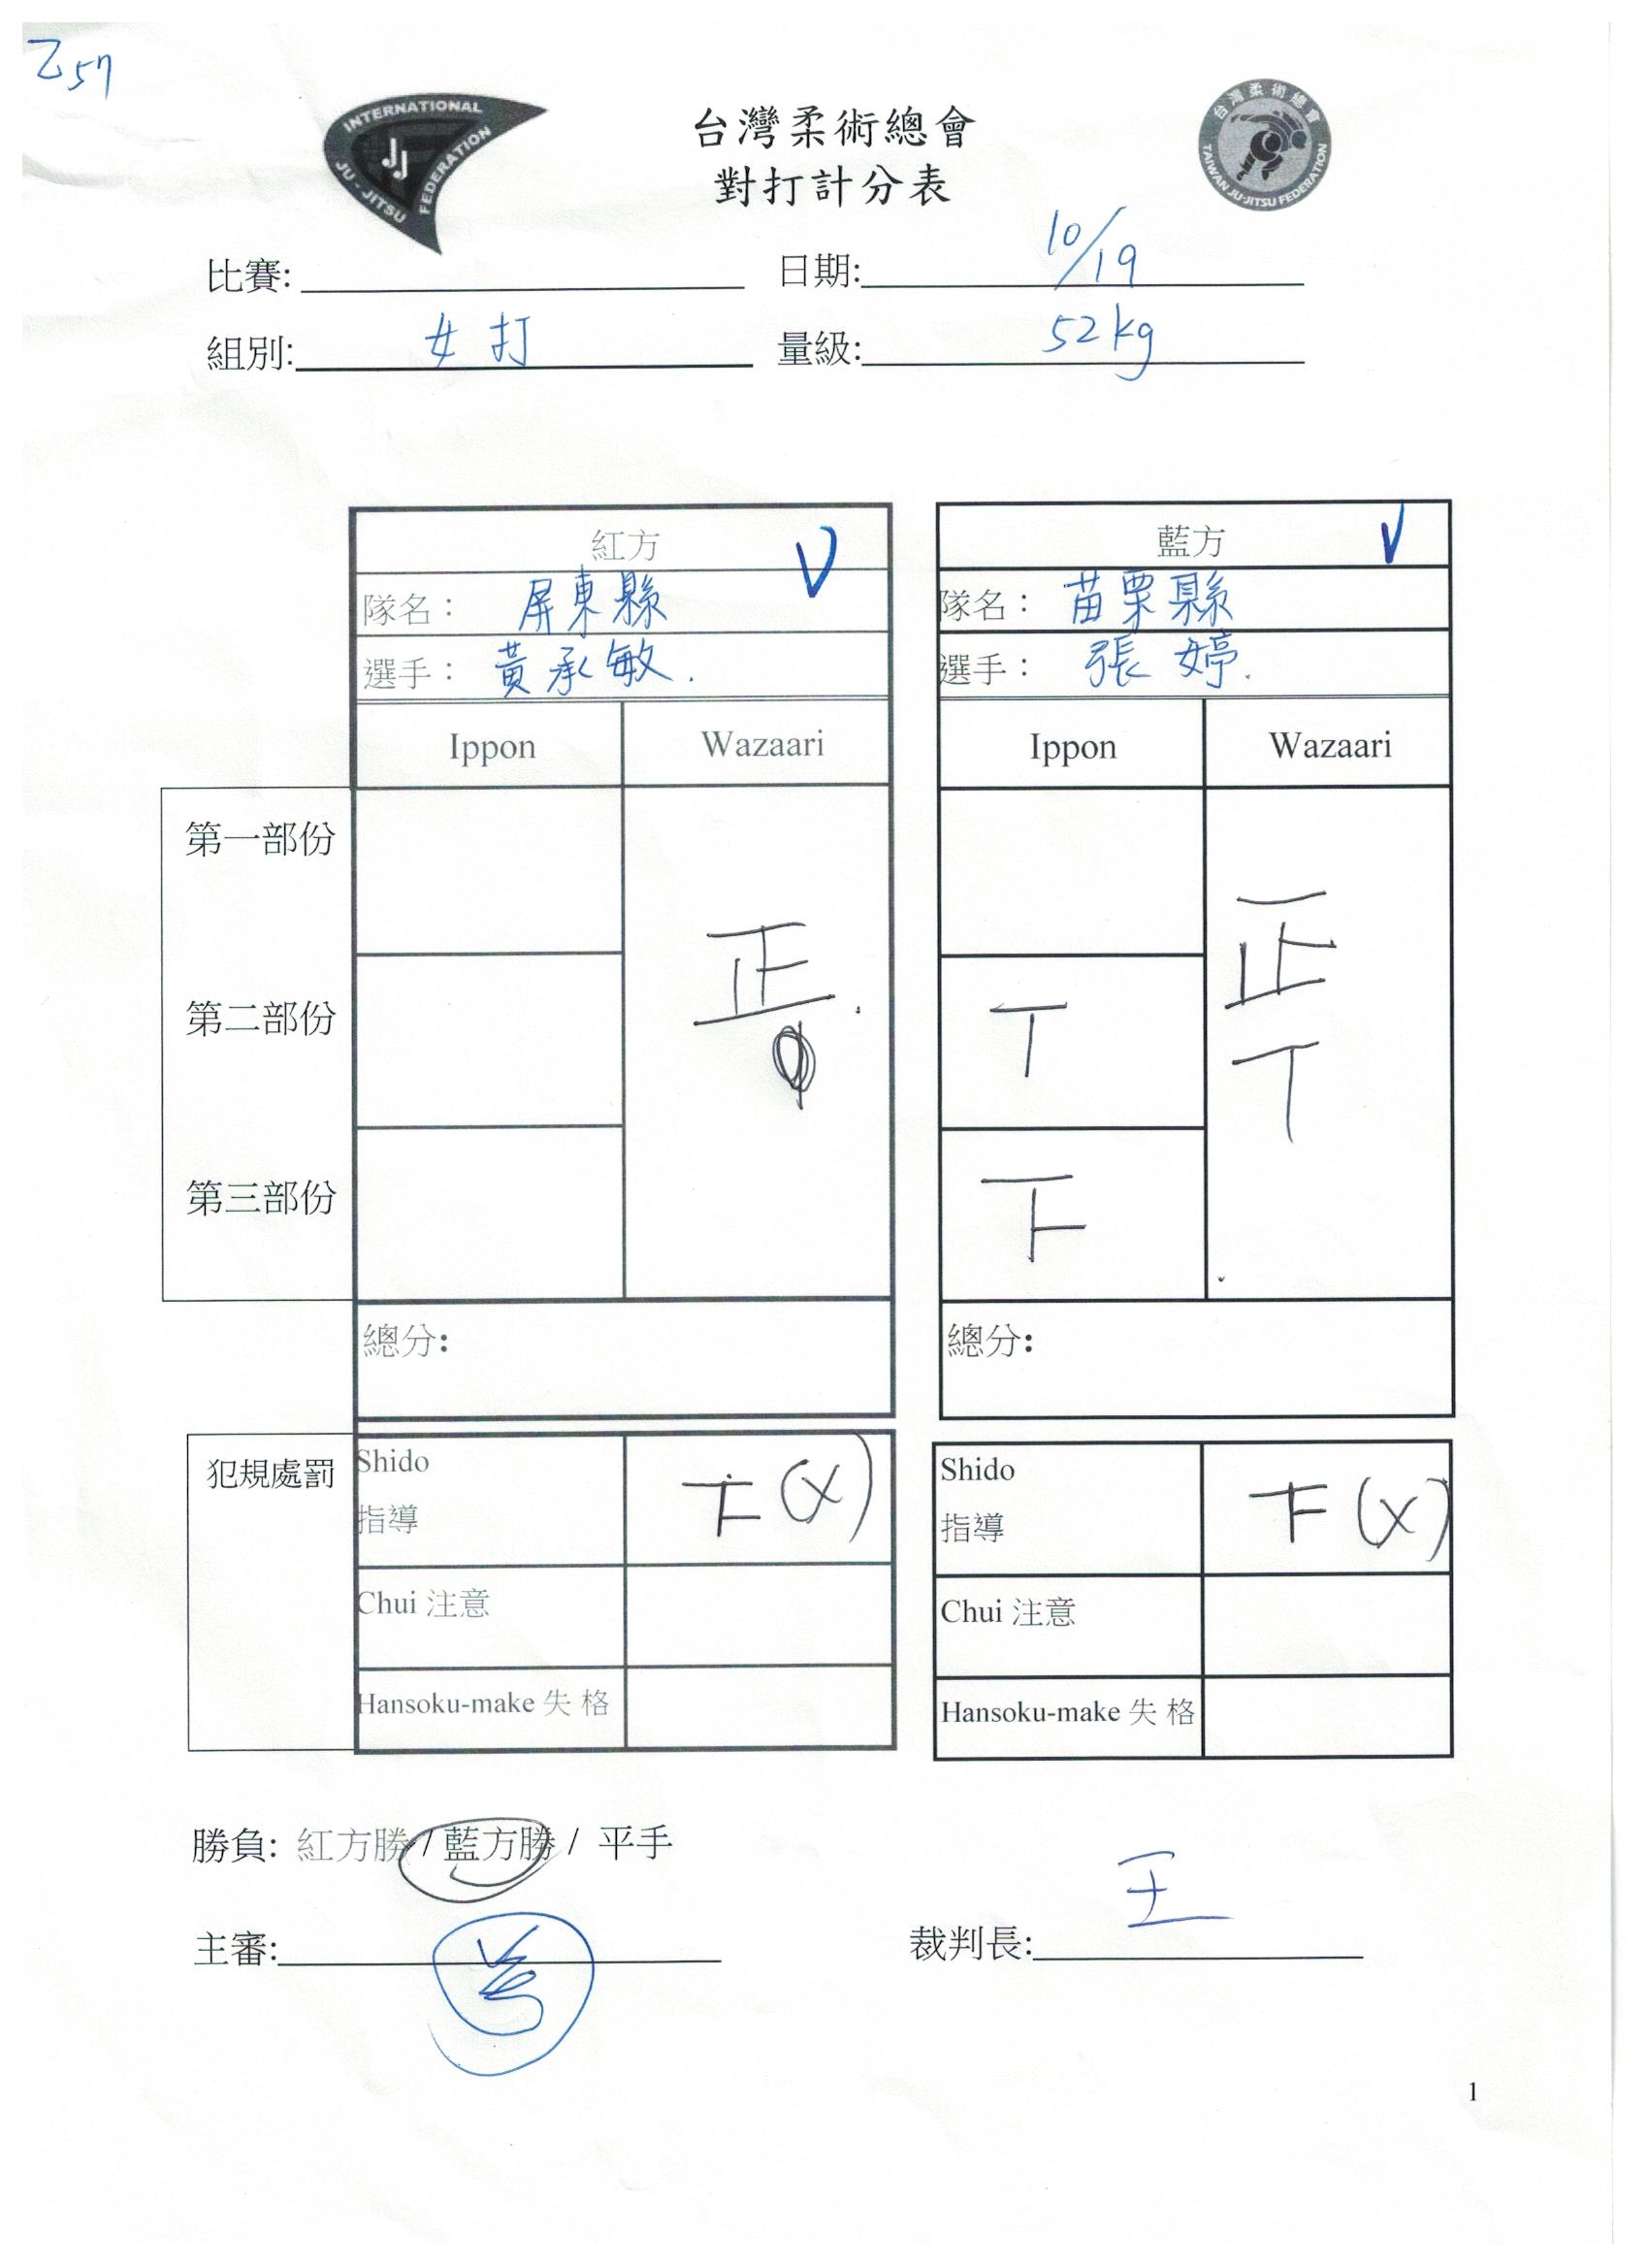 乙57
INTERNATIONAL JU-JITSU FEDERATION
JJ
台灣柔術總會
TAIWAN JU-JITSU FEDERATION
台灣柔術總會
對打計分表
比賽: 日期: 10/19
組別: 女打 量級: 52kg
紅方 V 藍方 V
隊名： 屏東縣 隊名： 苗栗縣
選手： 黃承敏. 選手： 張婷.
Ippon Wazaari Ippon Wazaari
第一部份
正 正
第二部份 T T
第三部份 下
總分: 總分:
犯規處罰
Shido 指導 下(X) Shido 指導 下(X)
Chui 注意 Chui 注意
Hansoku-make 失 格 Hansoku-make 失 格
勝負: 紅方勝 / 藍方勝 / 平手
主審: 裁判長: 王
1